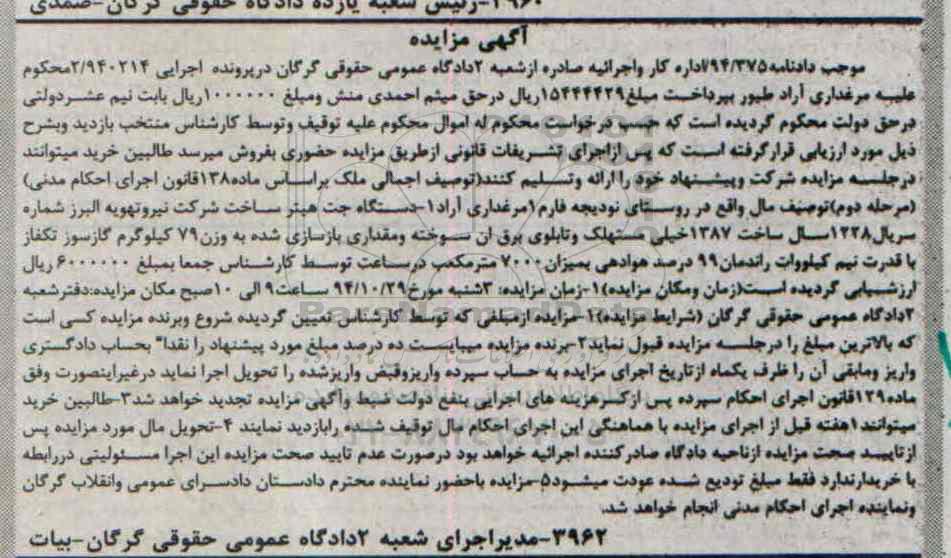 ۳۹۶۰-رئیس شعبه یازده دادگاه حقوقی گرگان-صمدی
آگهی مزایده
موجب دادنامه۹۴/۳۷۵اداره کار واجرائیه صادره ازشعبه ۲دادگاه عمومی حقوقی گرگان درپرونده اجرایی ۲/۹۴۰۲۱۴محکوم
علیه مرغداری آراد طیور بپرداخت مبلغ۱۵۴۴۴۴۲۹ریال درحق میثم احمدی منش ومبلغ ۱۰۰۰۰۰۰ریال بابت نیم عشردولتی
درحق دولت محکوم گردیده است که حسب درخواست محکوم له اموال محکوم علیه توقیف وتوسط کارشناس منتخب بازدید وبشرح
ذیل مورد ارزیابی قرارگرفته است که پس ازاجرای تشریفات قانونی ازطریق مزایده حضوری بفروش میرسد طالبین خرید میتوانند
درجلسه مزایده شرکت وپیشنهاد خود را ارائه وتسلیم کنند(توصیف اجمالی ملک براساس ماده۱۳۸قانون اجرای احکام مدنی)
(مرحله دوم)توصیف مال واقع در روستای نودیجه فارم۱مرغداری آراد۱-دستگاه جت هیتر ساخت شرکت نیروتهویه البرز شماره
سریال۱۲۲۸سال ساخت ۱۳۸۷خیلی مستهلک وتابلوی برق ان سوخته ومقداری بازسازی شده به وزن۷۹ کیلوگرم گازسوز تکفاز
با قدرت نیم کیلووات راندمان۹۹ درصد هوادهی بمیزان۷۰۰۰ مترمکعب درساعت توسط کارشناس جمعا بمبلغ ۶۰۰۰۰۰۰ ریال
ارزشیابی گردیده است(زمان ومکان مزایده)۱-زمان مزایده: ۳شنبه مورخ۹۴/۱۰/۲۹ ساعت۹ الی ۱۰صبح مکان مزایده:دفترشعبه
۲دادگاه عمومی حقوقی گرگان (شرایط مزایده)۱-مزایده ازمبلغی که توسط کارشناس تعیین گردیده شروع وبرنده مزایده کسی است
که بالاترین مبلغ را درجلسه مزایده قبول نماید۲-برنده مزایده میبایست ده درصد مبلغ مورد پیشنهاد را نقدا" بحساب دادگستری
واریز ومابقی آن را ظرف یکماه ازتاریخ اجرای مزایده به حساب سپرده واریزوقبض واریزشده را تحویل اجرا نماید درغیراینصورت وفق
ماده۱۲۹قانون اجرای احکام سپرده پس ازکسرهزینه های اجرایی بنفع دولت ضبط وآگهی مزایده تجدید خواهد شد۳-طالبین خرید
میتوانند۱هفته قبل از اجرای مزایده با هماهنگی این اجرای احکام مال توقیف شده رابازدید نمایند ۴-تحویل مال مورد مزایده پس
ازتایید صحت مزایده ازناحیه دادگاه صادرکننده اجرائیه خواهد بود درصورت عدم تایید صحت مزایده این اجرا مسئولیتی دررابطه
با خریدارندارد فقط مبلغ تودیع شده عودت میشود۵-مزایده باحضور نماینده محترم دادستان دادسرای عمومی وانقلاب گرگان
ونماینده اجرای احکام مدنی انجام خواهد شد.
۳۹۶۲-مدیراجرای شعبه ۲دادگاه عمومی حقوقی گرگان-بیات